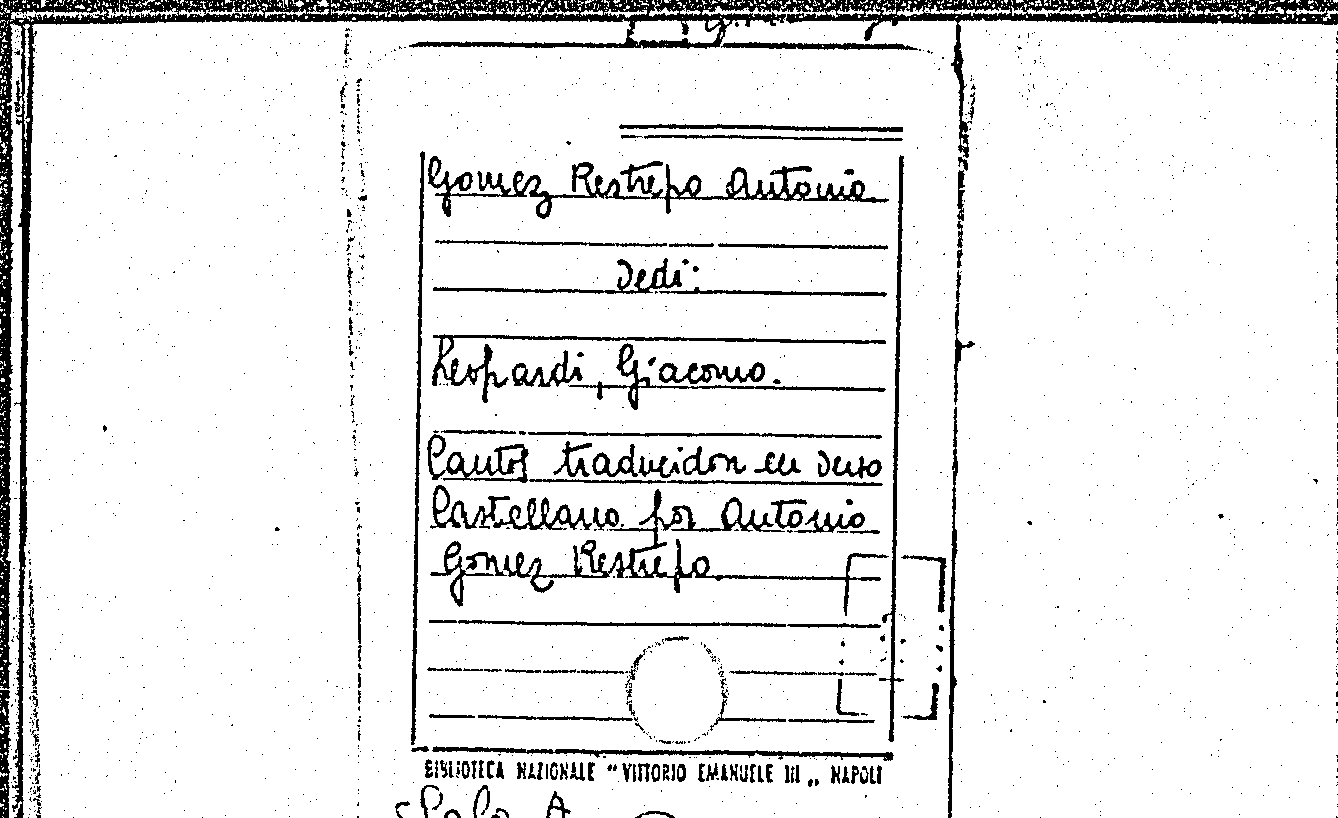 Gomez Restrepo Antonio.
Vedi:
Leopardi, Giacomo.
Cantos traducidon en verso
Castellano por Antonio
Gomez Restrepo.
BIBLIOTECA NAZIONALE "VITTORIO EMANUELE III „ NAPOLI